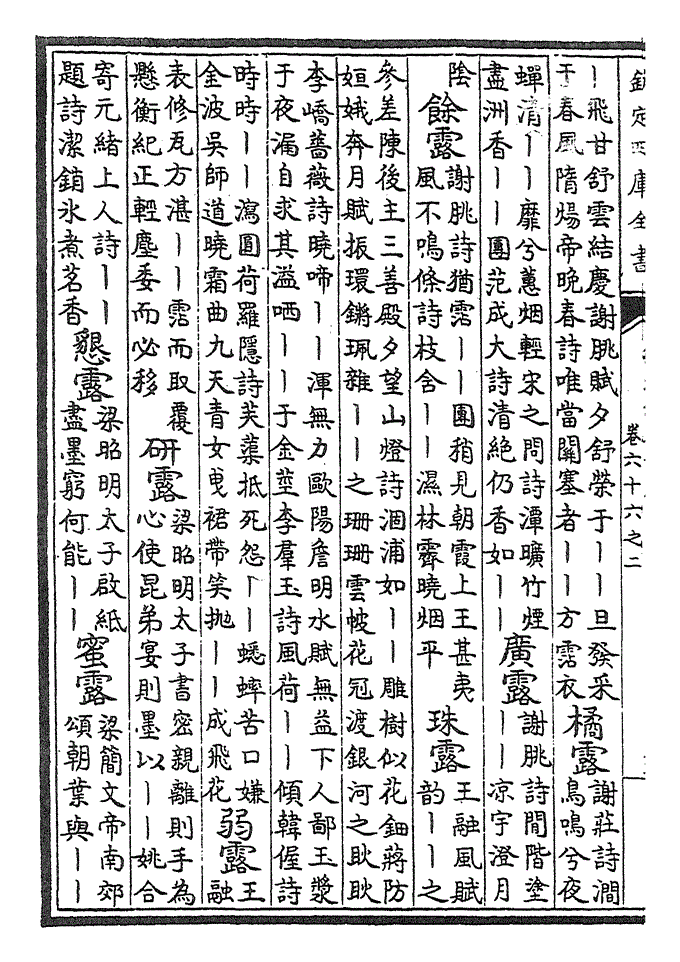 欽定四庫全書
卷六十六之二
丨飛甘舒雲結慶謝朓賦夕舒榮于丨丨旦發采
于春風隋煬帝晚春詩唯當關塞者丨丨方霑衣
橘露
謝莊詩澗
鳥鳴兮夜
蟬清丨丨靡兮蕙烟輕宋之問詩潭曠竹煙
盡洲香丨丨團范成大詩清絕仍香如丨丨
廣露
謝朓詩閒階塗
丨丨凉宇澄月
陰
餘露
謝朓詩猶霑丨丨團稍見朝霞上王甚夷
風不鳴條詩枝含丨丨濕林霽曉烟平
珠露
王融風賦
韵丨丨之
參差陳後主三善殿夕望山燈詩涸浦如丨丨雕樹似花鈿蔣防
姮娥奔月賦振環鏘珮雜丨丨之珊珊雲帔花冠渡銀河之耿耿
李嶠薔薇詩曉啼丨丨渾無力歐陽詹明水賦無益下人鄙玉漿
于夜漏自求其溢哂丨丨于金莖李羣玉詩風荷丨丨傾韓偓詩
時時丨丨瀉圓荷羅隱詩芙蕖抵死怨丨丨蟋蟀苦口嫌
金波吳師道曉霜曲九天青女曳裙帶笑拋丨丨成飛花
弱露
王
融
表修瓦方湛丨丨霑而取覆
懸衡紀正輕塵委而必移
研露
梁昭明太子書密親離則手為
心使昆弟宴則墨以丨丨姚合
寄元緒上人詩丨丨
題詩潔銷氷煮茗香
懇露
梁昭明太子啟紙
盡墨窮何能丨丨
蜜露
梁簡文帝南郊
頌朝葉與丨丨